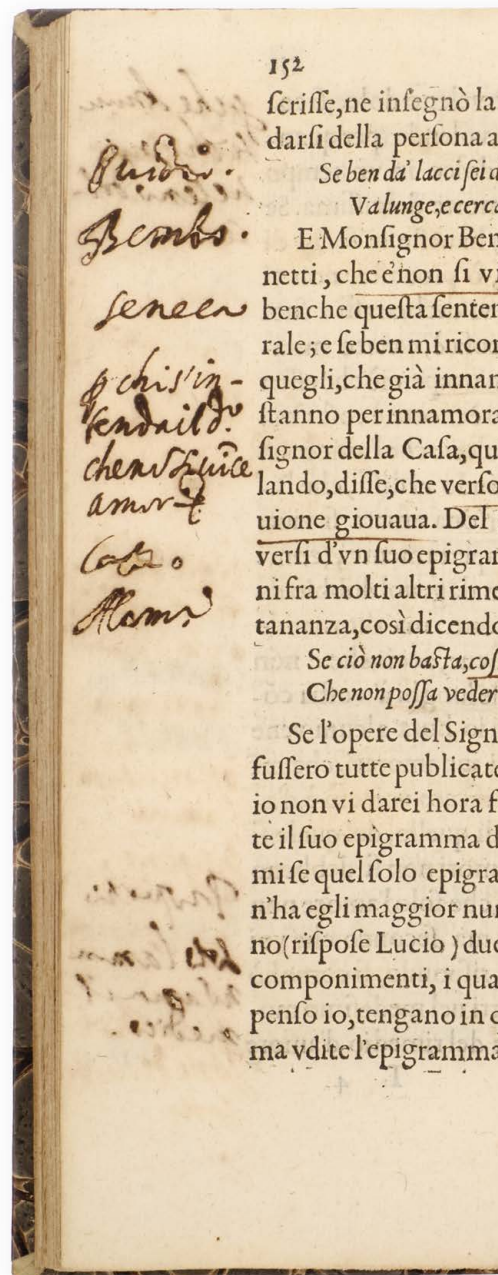 152
ſcriſſe, ne inſegnò la
darſi della perſona a
Ouidio.
Se ben da' lacci ſei
Va lunge, e cerc
Bembo.
E Monſignor Ben
netti, che e' non ſi v
Seneca
benche queſta ſente
rale; e ſe ben mi ricor
chi s'in-
quegli, che già innar
ſtanno per innamora
ſignor della Caſa, qu
lando, diſſe, che verſo
amor
uione giouaua. Del
Caſa.
verſi d'vn ſuo epigra
ni fra molti altri rime
Alama.
tananza, così dicendo
Se ciò non baſta, coſ
Che non poſſa veder
Se l'opere del Sign
fuſſero tutte publicate
io non vi darei hora f
te il ſuo epigramma d
mi ſe quel ſolo epigra
n'ha egli maggior nu
no (riſpoſe Lucio) due
componimenti, i qua
penſo io, tengano in
ma vdite l'epigramma